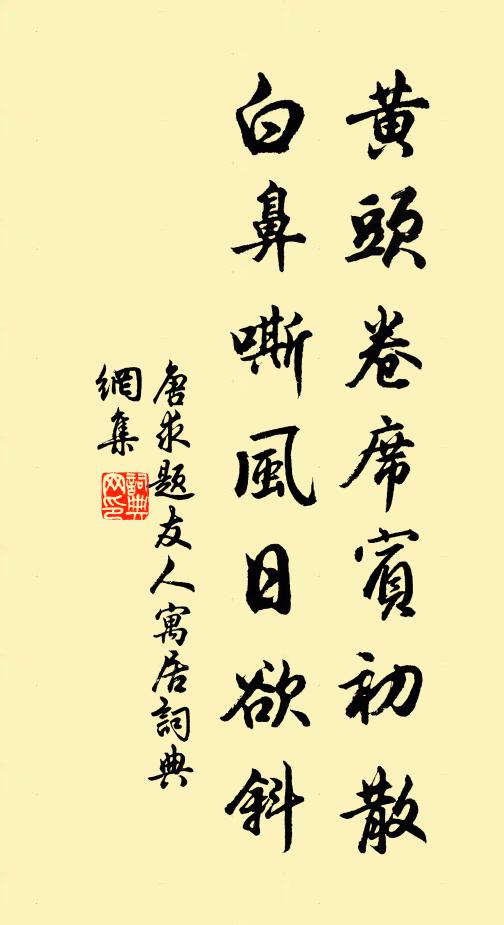 黃頭卷席賓初散
白鼻嘶風日欲斜
唐求題友人寓居詞典
網集
詞典
网印